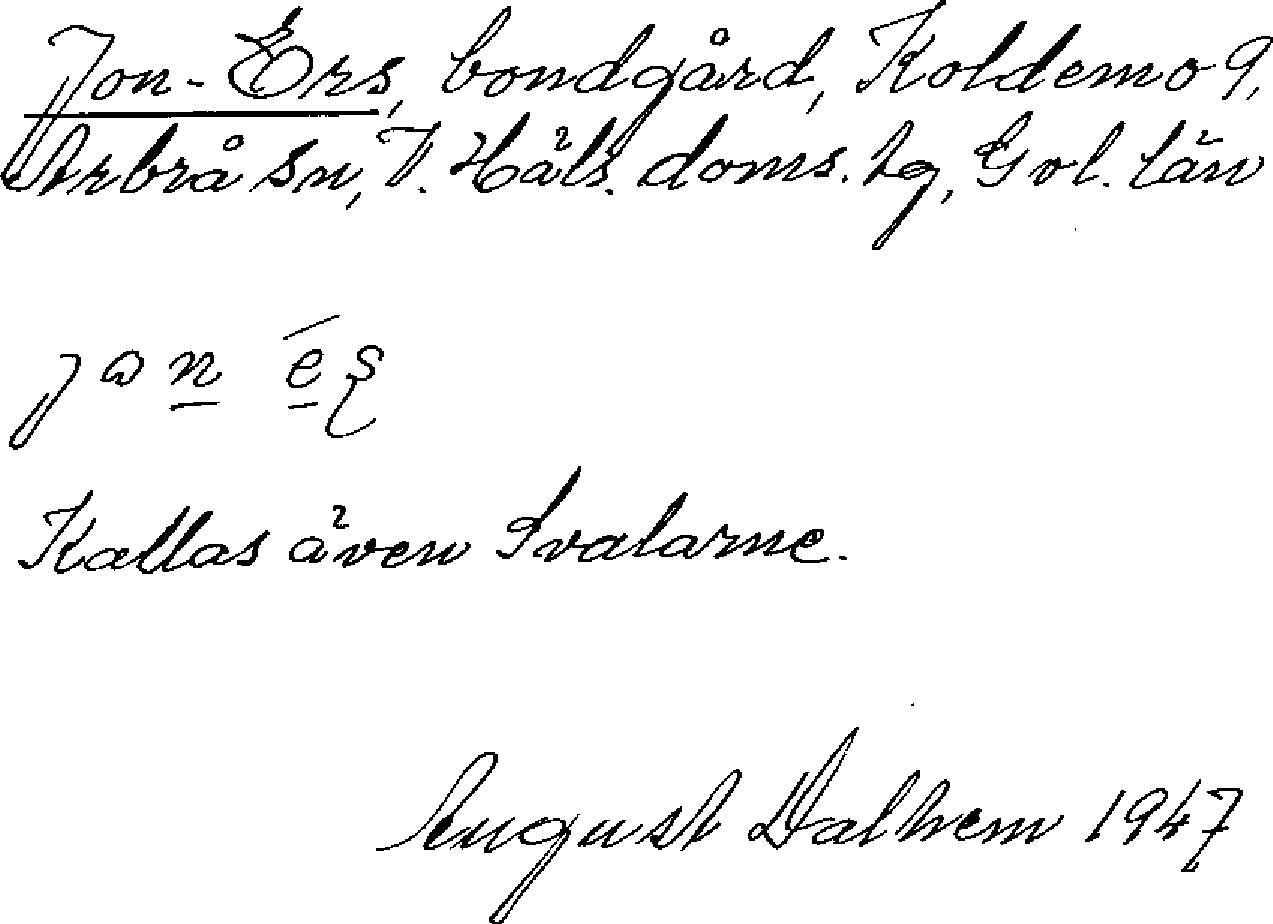 Jon-Ers, bondgård, Koldemo 9,
Arbrå sn, V. Häls. doms. tg, Gvl. län
jon es
Kallas även Svalarne.
August Dalhem 1947